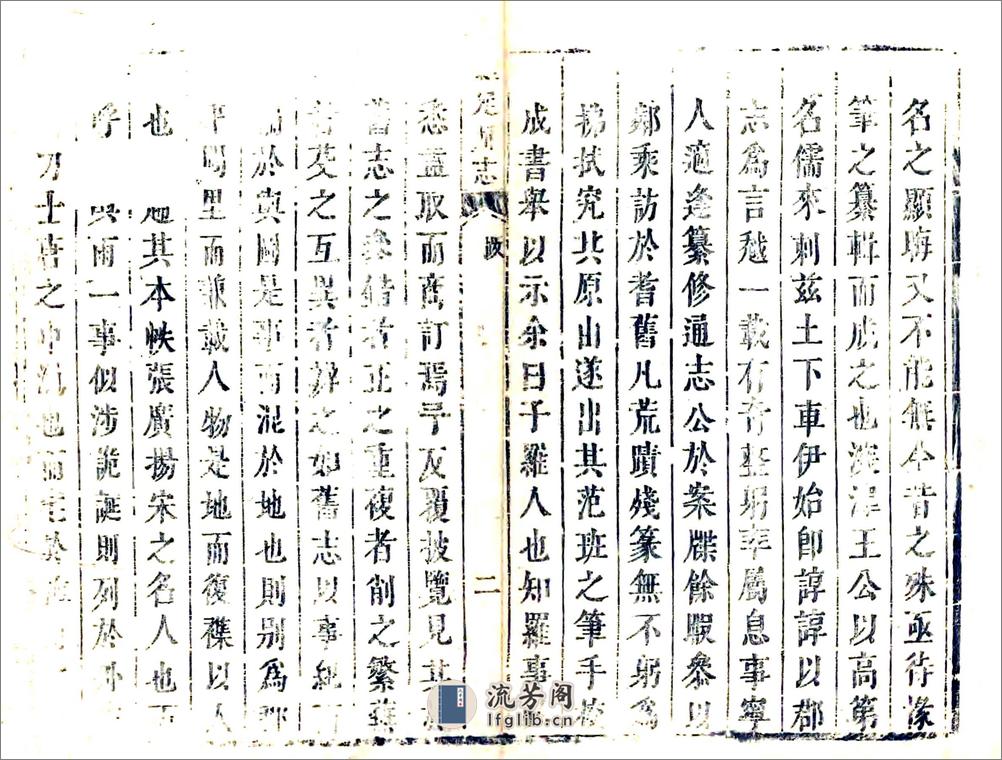 名之顯晦又不能無今昔之殊亟待椽
筆之纂輯而成之也溪澤王公以高第
名儒來刺兹土下車伊始卽諄諄以郡
志爲言越一載冇奇堅躬率屬息事寧
人適逢纂修通志公於案牒餘暇叅以
鄰乘訪於耆舊凡荒蹟殘篆無不躬爲
捫拭究其原出遂出其范班之筆手
成書舉以示余曰子羅人也知羅事
悉盍取而商訂焉予反覆披覽見其
舊志之叅錯者正之重複者削之繁蕪
者芟之互異者辨之如舊志以事紀
於輿圖是事而混於地也則别爲郡
鄉里而兼載人物是地而復襍以人
也 其本帙張廣揚宋之名人也
呼 雨一事似涉詭誕則列於外
刀士 之 也而
志
政
二
流芳阁
lfglib.cn